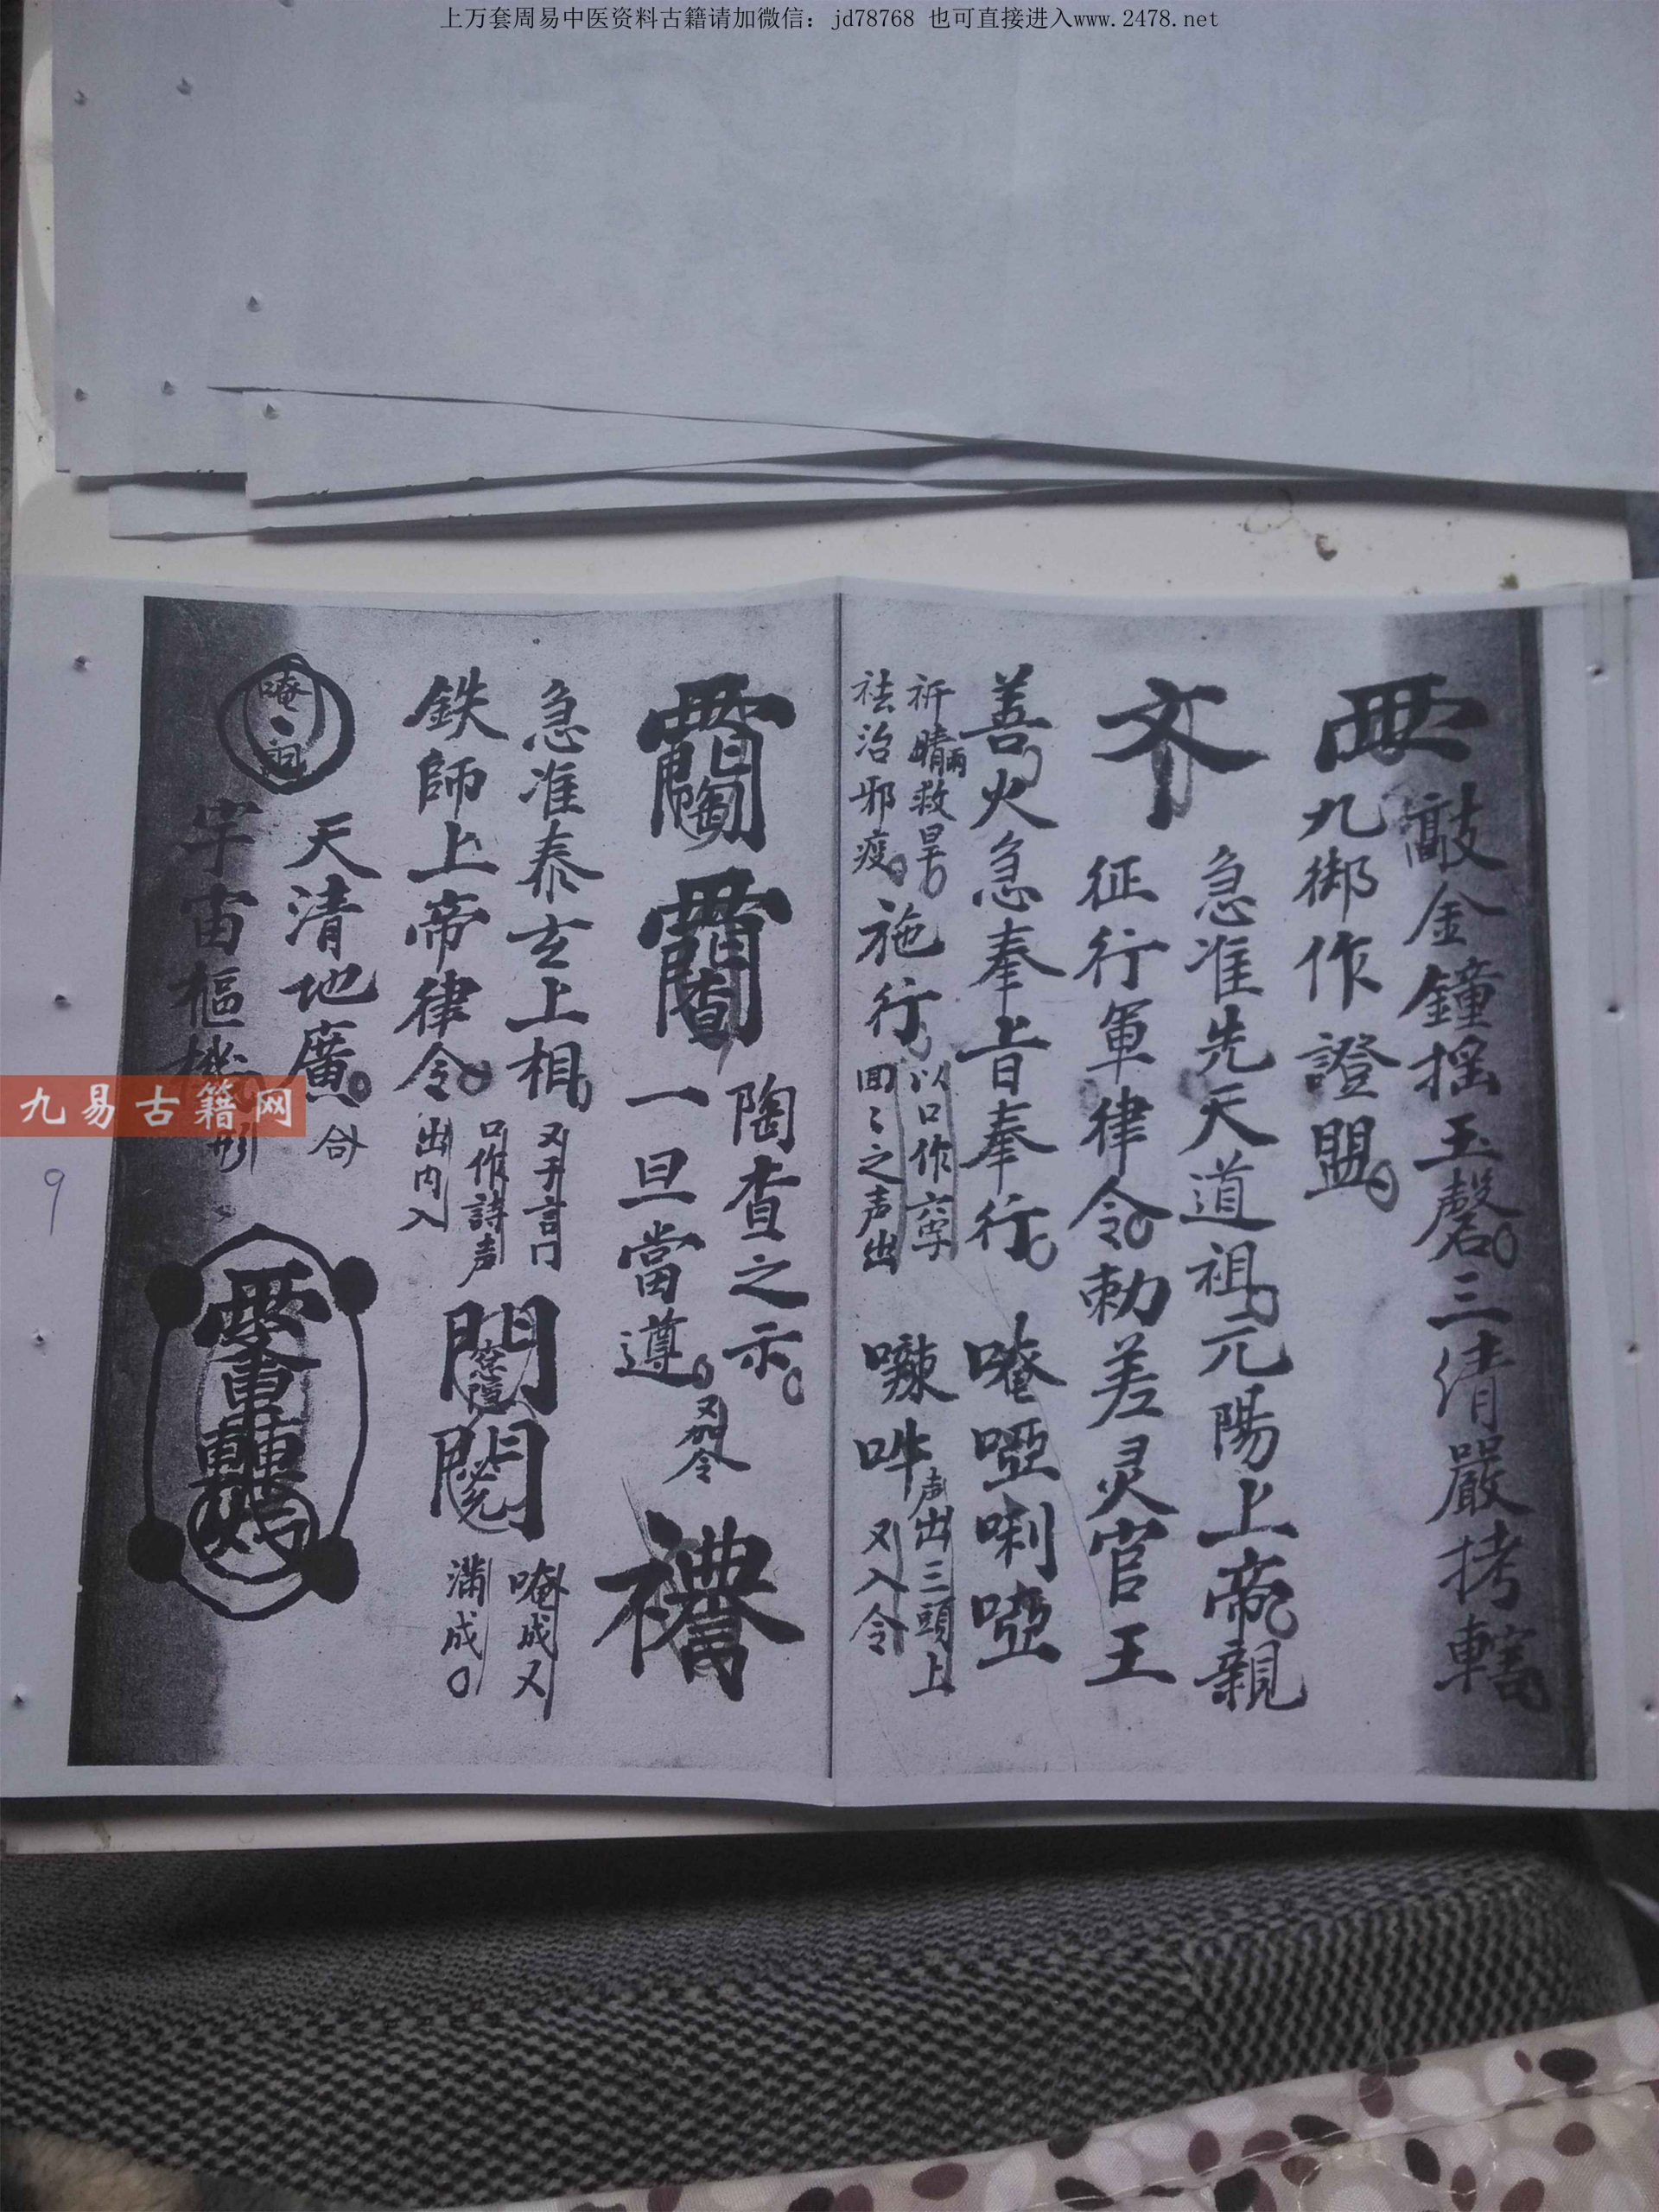 上万套周易中医资料古籍请加微信：jd78768 也可直接进入www.2478.net
敲金鐘摇玉磬三清嚴拷轄
九御作證盟
急准先天道祖元陽上帝親
征行軍律令勅差灵官王
善火急奉旨奉行 唵啞唎啞
祈晴雨救旱
祛治邪疫
施行
以口作六字
回之声出
声出三頭上
又入令
陶查之示
一旦當遵
急准泰玄上相
又于言门
口作詩声
唵成又
鉄師上帝律令
出内入
满成
天清地廣 合
宇宙樞機 形
唵
九易古籍网
9